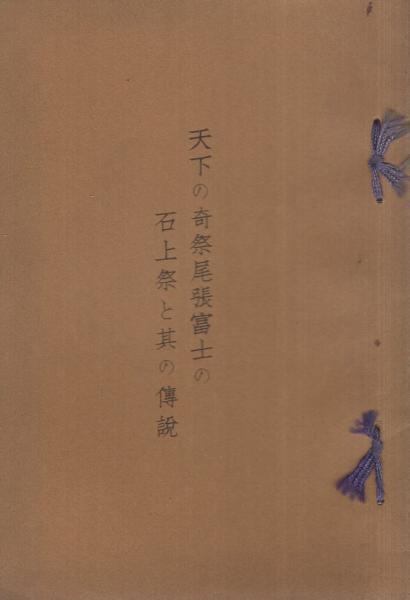 天下の奇祭尾張富士の
石上祭と其の傳說